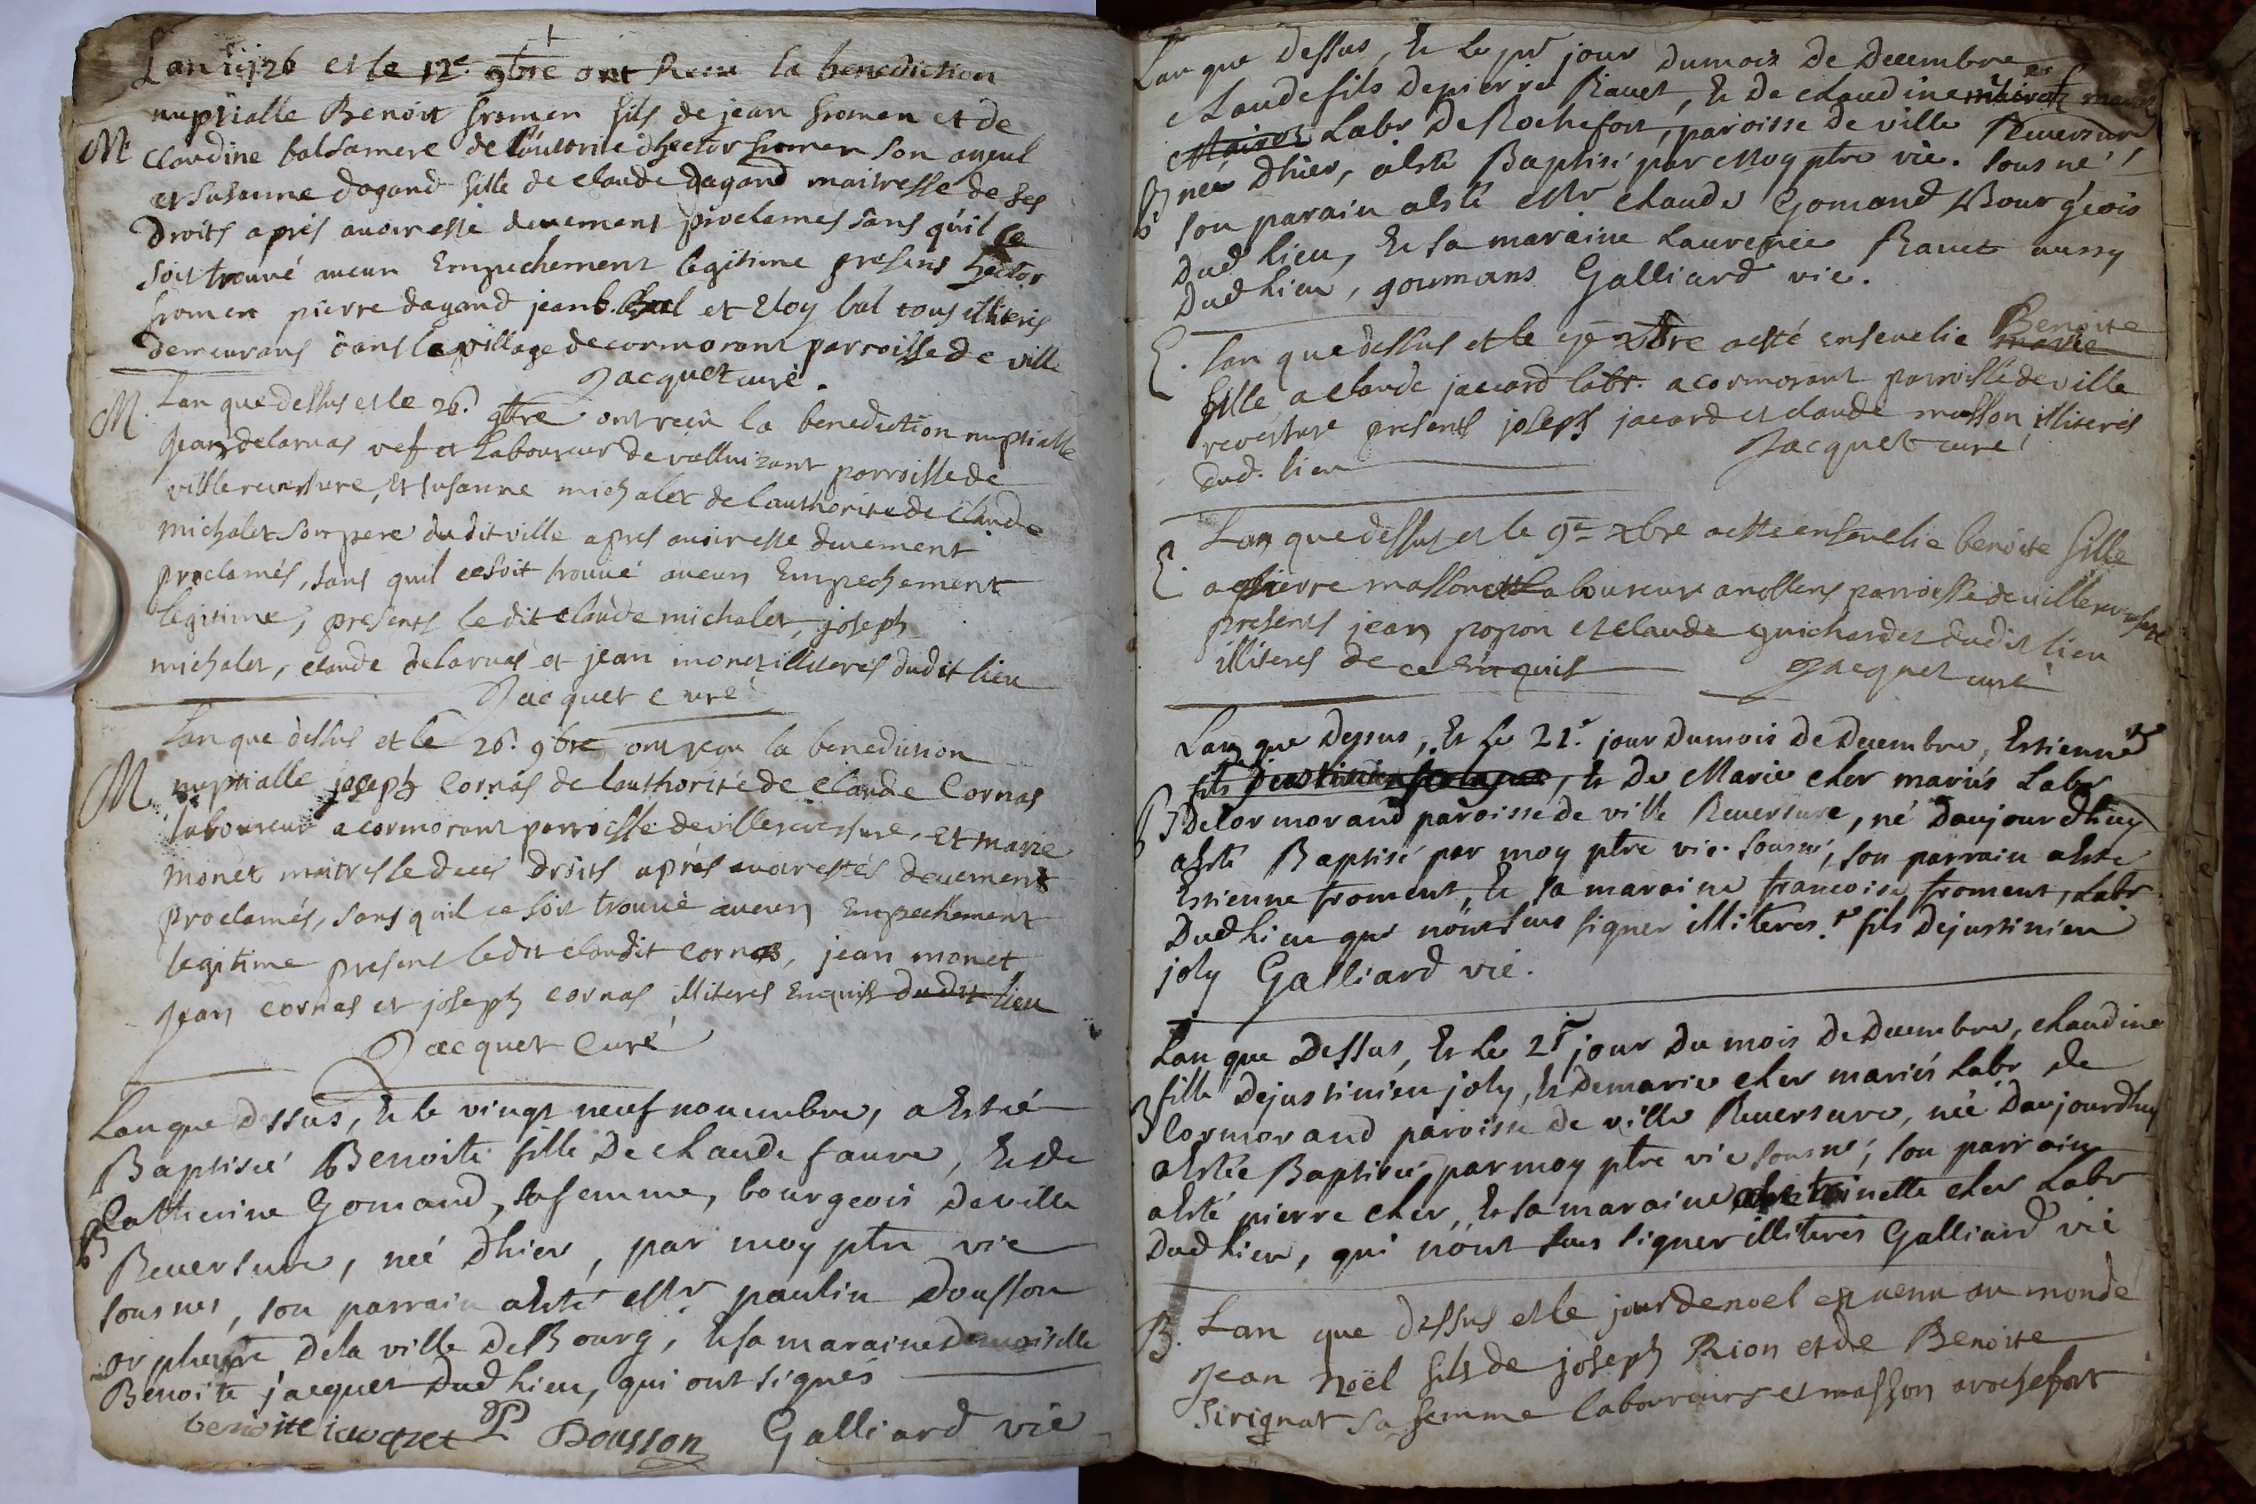 Lan 1726 et le 12e 9bre ont Receu la benediction
nuptialle Benoit fromen fils de jean fromen et de
M Claudine balsamere de dhector fromen son ayeul
et Susanne dagand fille de claude dagand maitresse de ses
droits aprés avoir esté deuement proclames sans quil ce
soit trouvé aucun Empechement legitime presens hector
fromen pierre dagand jean b. bal et Eloy bal tous illiteris
demeurans dans le village de cormorant parroisse de ville
Jacquet curé.
M. Lan que dessus et le 26. 9bre ont receu la benediction nuptialle
Jean delaruas vef et Laboureur de valluisant parroisse de
villereversure, Et susanne michalet de lauthorité de Claude
michalet son pere du dit ville apres avoir esté deuement
proclamés, sans quil ce soit trouvé aucun Empechement
legitime, presents le dit claude michalet, joseph
michalet, claude delaruas et jean monet illiteres dudit lieu
Jacquet curé
Lan que dessus et le 26. 9bre ont reçu la benediction
M nuptialle joseph Cornas de lauthorité de Claude Cornas
laboureur a cormorant parroisse de villereversure, et marie
monet maitresse de ces droits aprés avoir estés deuement
proclamés, sans quil ce soit trouvé aucun Empechement
legitime present ledit claudit cornas, jean monet
Jean cornas et joseph cornas illiteres Enquis dudit lieu
Jacquet Curé
Lan que dessus, Et le vingt neuf novembre, a Esté
Baptisée Benoite fille De claude faure, Et de
B Catherine Gomand, sa femme, bourgeois De ville
Reversure, née dhier, par moy ptre vic
sousnes, son parrain a esté Mr paulin Dousson
orpheure de la ville de Bourg, Et sa maraine demoiselle
Benoite jacquet Dud lieu, qui ont signés
benoite iacqzet P Dousson Galliard vic
Lan que dessus, Et le pr jour dumois De Decembre
Claude fils De pierre Ravet, Et De claudine
Mairot Labr De Rochefort, paroisse de ville Reversure
B né dhier, a esté Baptisé par Moy ptre vic. sousné,
son parain a esté Mr claude Gomand Bourgeois
Dud lieu, Et sa maraine Laurence Ravet aussy
Dud lieu, gourmans Galliard vic.
E. Lan que dessus et le xbre a esté ensevelie Benoite
marie
fille a claude jaccard labr. a cormorant parroisse de ville
reversure presents joseph jacard et claude masson illiterés
dud. lieu Jacquet curé
E. Lan que dessus et le 9e xbre a esté ensevelie benoite fille
a pierre masson Laboureur a noblens parroisse de villereversure
presents jean popon et claude guichardet dudit lieu
illiteres de ce Enquis Jacquet curé
Lan que Dessus, Et le 21e jour Dumois De Decembre, Estienne
fils, Et De Marie cher mariés Labr
B De Cormorand paroisse de ville Reversure, né Daujourdhuy
a esté Baptisé par moy ptre vic. sousné, son parrain a esté
Estienne froment, Et sa maraine francoise froment, Labr
Dud lieu qui nont sceus signer illiteres. fils De justinien
joly Galliard vic.
Lan que Dessus, Et le 21 jour Du mois De Decembre, claudine
fille De justinien joly, Et De marie cher mariés Labr de
B Cormorand paroisse de ville Reversure, née Daujourdhuy
a Estée Baptisée par moy ptre vic sousné, son parrain
a esté pierre cher, Et sa maraine toinette cher Labr
Dud lieu, qui nont sceus signer illiterés Galliard vic
B. Lan que dessus et le jour de noel est venu au monde
Jean noël fils de joseph Rion et de Benoite
sirignat sa femme laboureurs et masson a rochefort